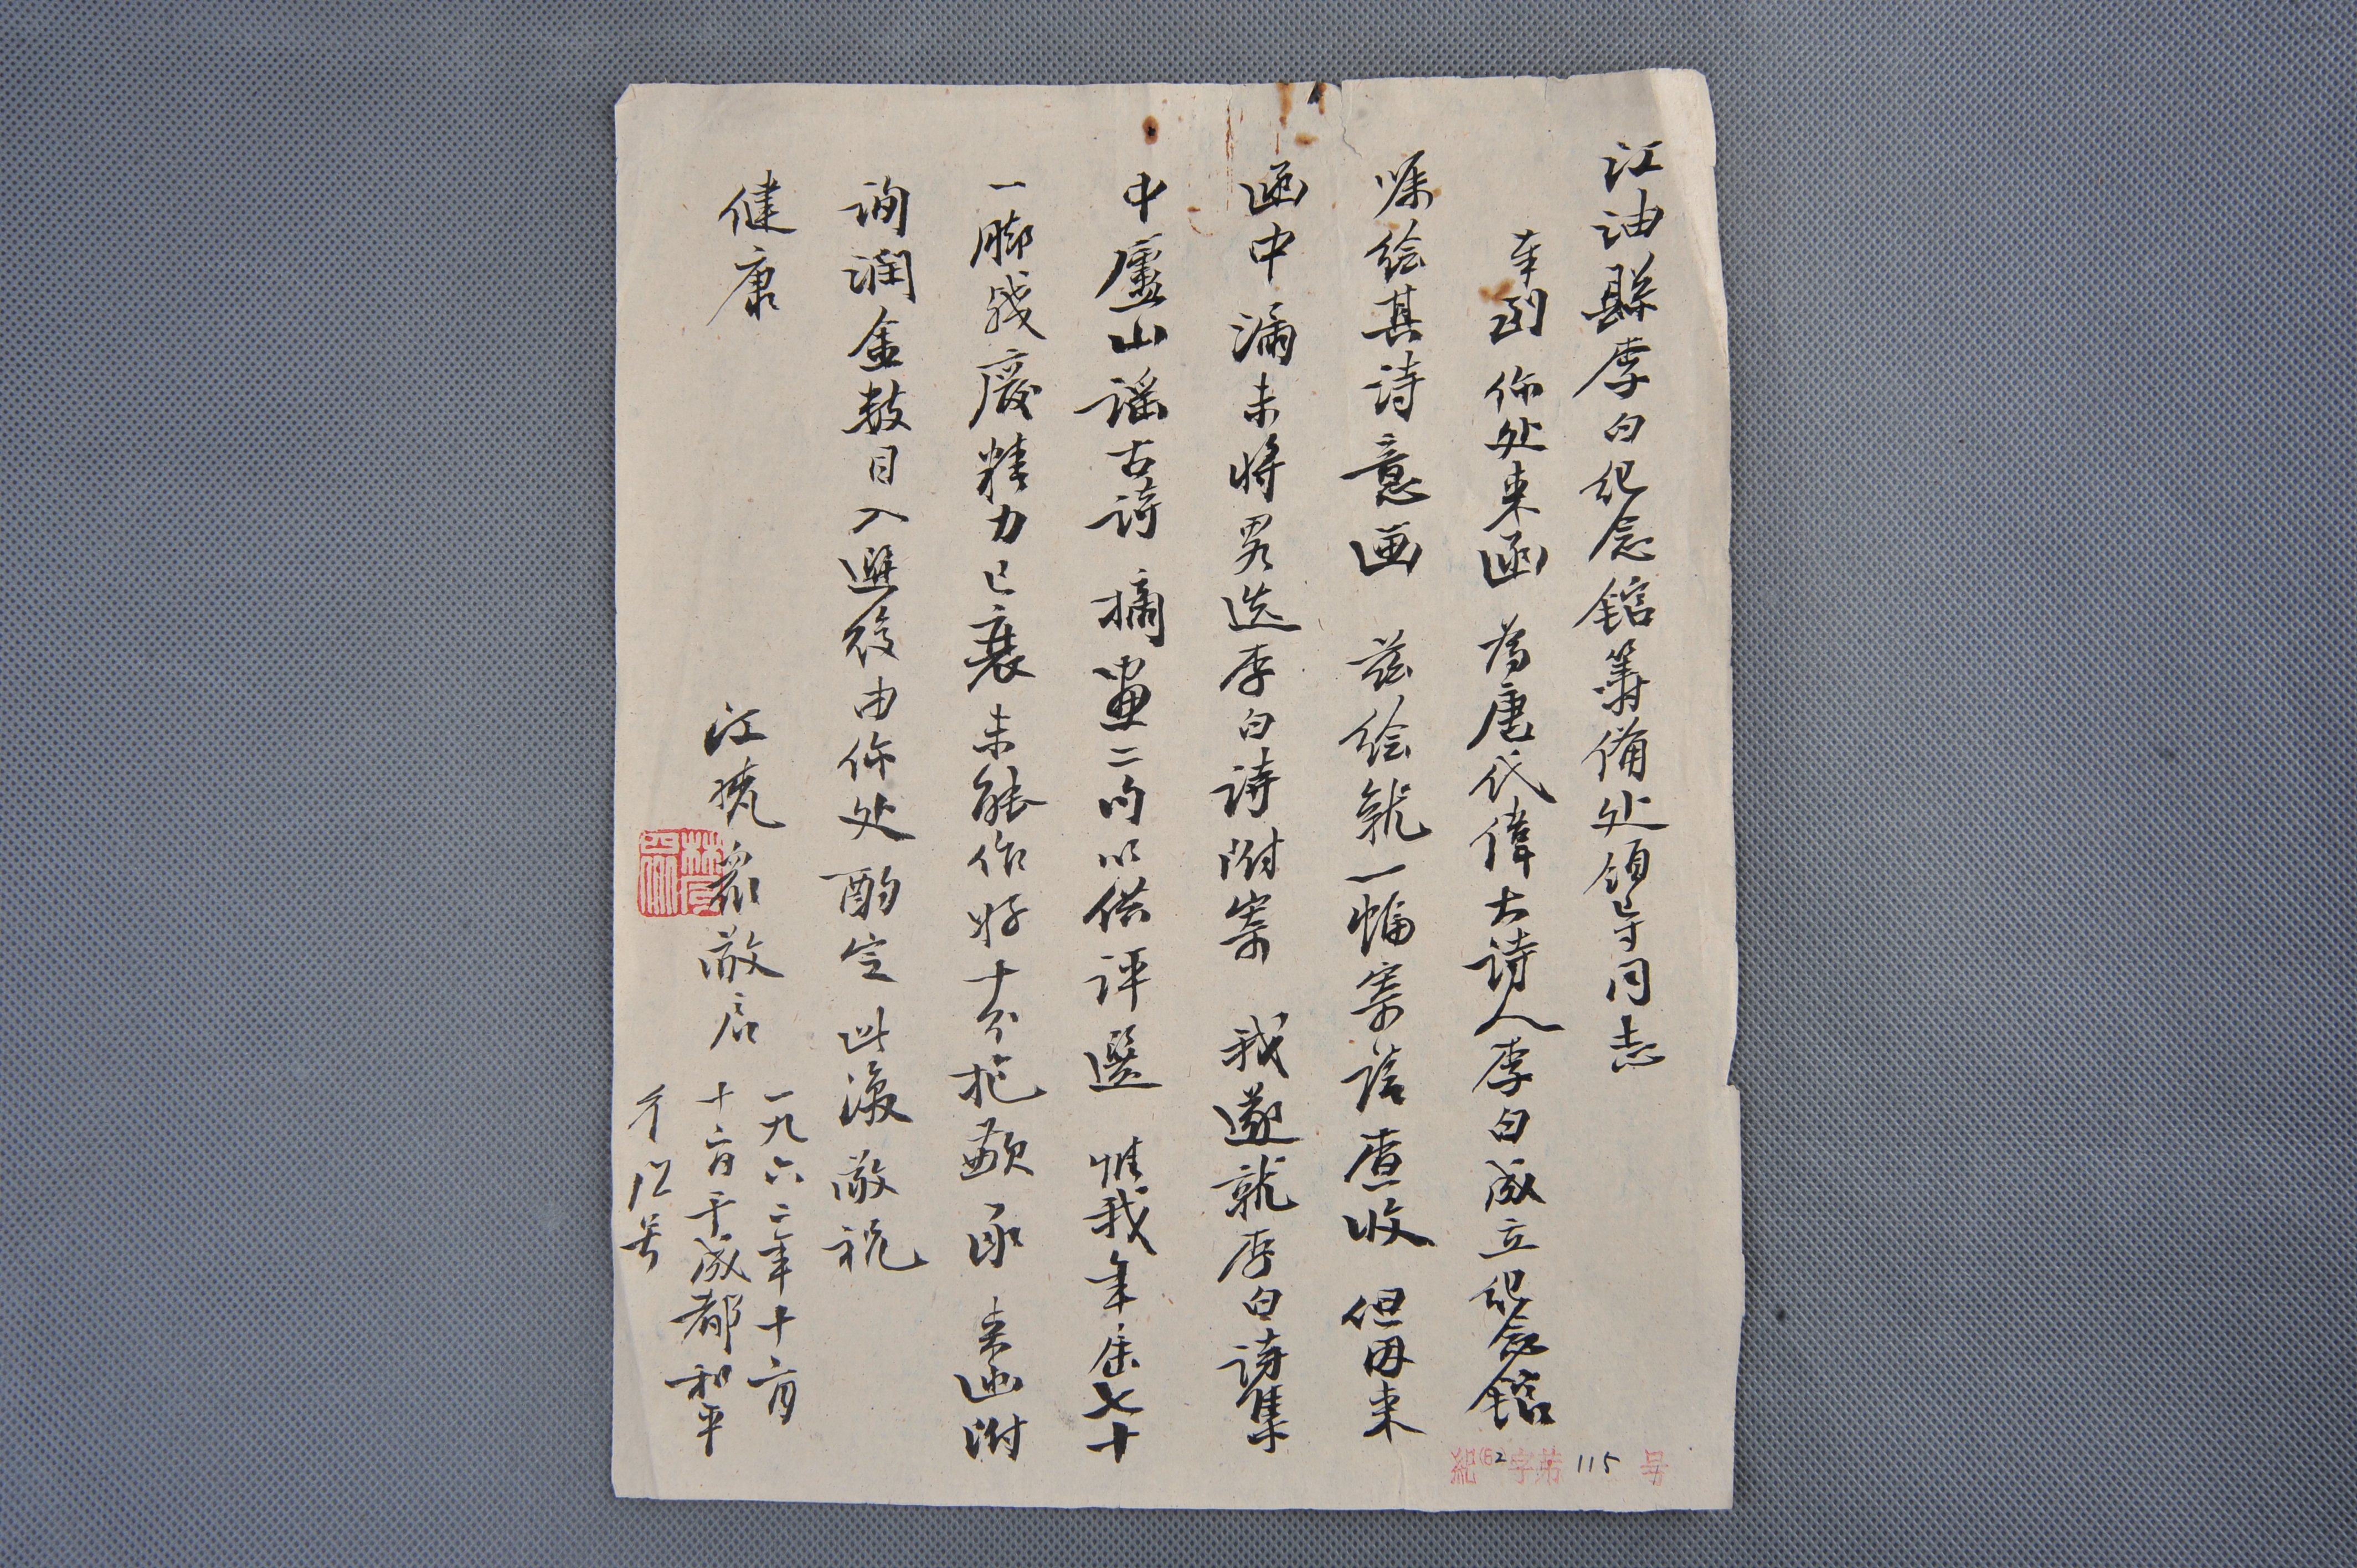 江油縣李白纪念館籌備处领导同志
奉到你处来函為唐代偉大诗人李白成立纪念館
嘱绘其诗意画兹绘就一幅寄請查收但因来
函中漏未将畧选李白诗附寄我遂就李白詩集
中廬山谣古詩摘畫二句以供評選惟我年届七十
一脚残廢精力已衰未能作好十分抱歉承来函附
询润金数目入選後由你处酌定此復敬祝
健康
江 敬启
一九六二年十二月
十六日于成都和平
紀(62)字第115号